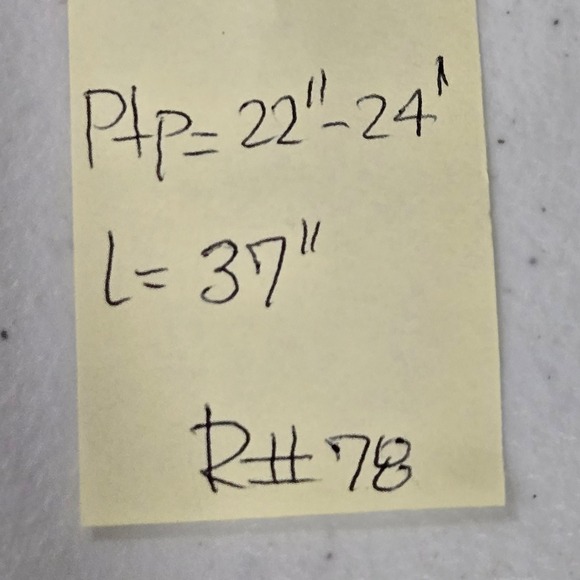 Ptp= 22"-24"
l= 37"
R# 78